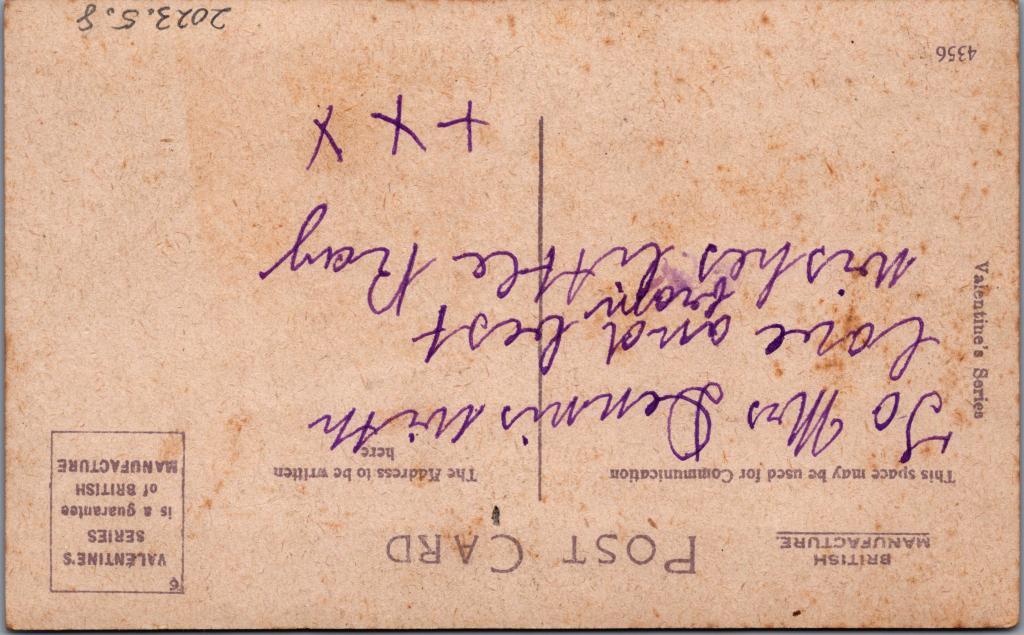 BRITISH
MANUFACTURE
POST CARD
6
VALENTINE'S
SERIES
is a guarantee
of BRITISH
MANUFACTURE
This space may be used for Communication
The Address to be written
here
To Mrs Dennis with
love and best
wishes from little Ray
+ X X
Valentine's Series
4356
2023.5.8